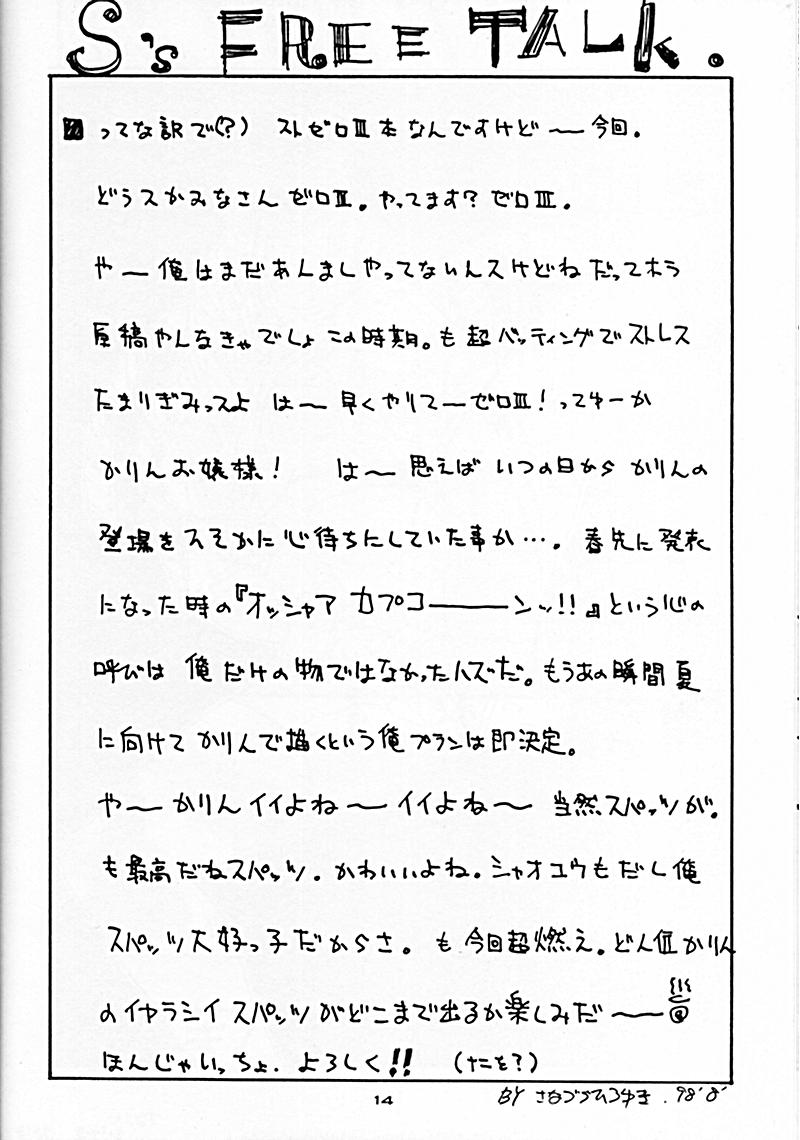 S's FREE TALK.
ってな訳で(?) ストゼロⅢ本なんですけど〜今回。
どうスかみなさんゼロⅢ。やってます? ゼロⅢ。
や〜俺はまだあんましやってないんスけどねだってホラ
原稿やんなきゃでしょこの時期。も超バッティングでストレス
たまりぎみっスよ は〜早くやりてーゼロⅢ!ってゆーか
かりんお嬢様! は〜思えばいつの日からかりんの
登場をひそかに心待ちにしていた事か…。春先に発表
になった時の『オッシャアカプコーーーンッ!!』という心の
呼びは俺だけの物ではなかったハズだ。もうあの瞬間夏
に向けてかりんで描くという俺プランは即決定。
や〜かりんイイよね〜イイよね〜 当然スパッツが。
も最高だねスパッツ。かわいいよね。シャオユウもだし俺
スパッツ大好っ子だからさ。も今回超燃え。どん位かりん
のイヤラシイスパッツがどこまで出るか楽しみだ〜
ほんじゃいっちょ.よろしく!! (ナニを?)
14
BY .98'8'